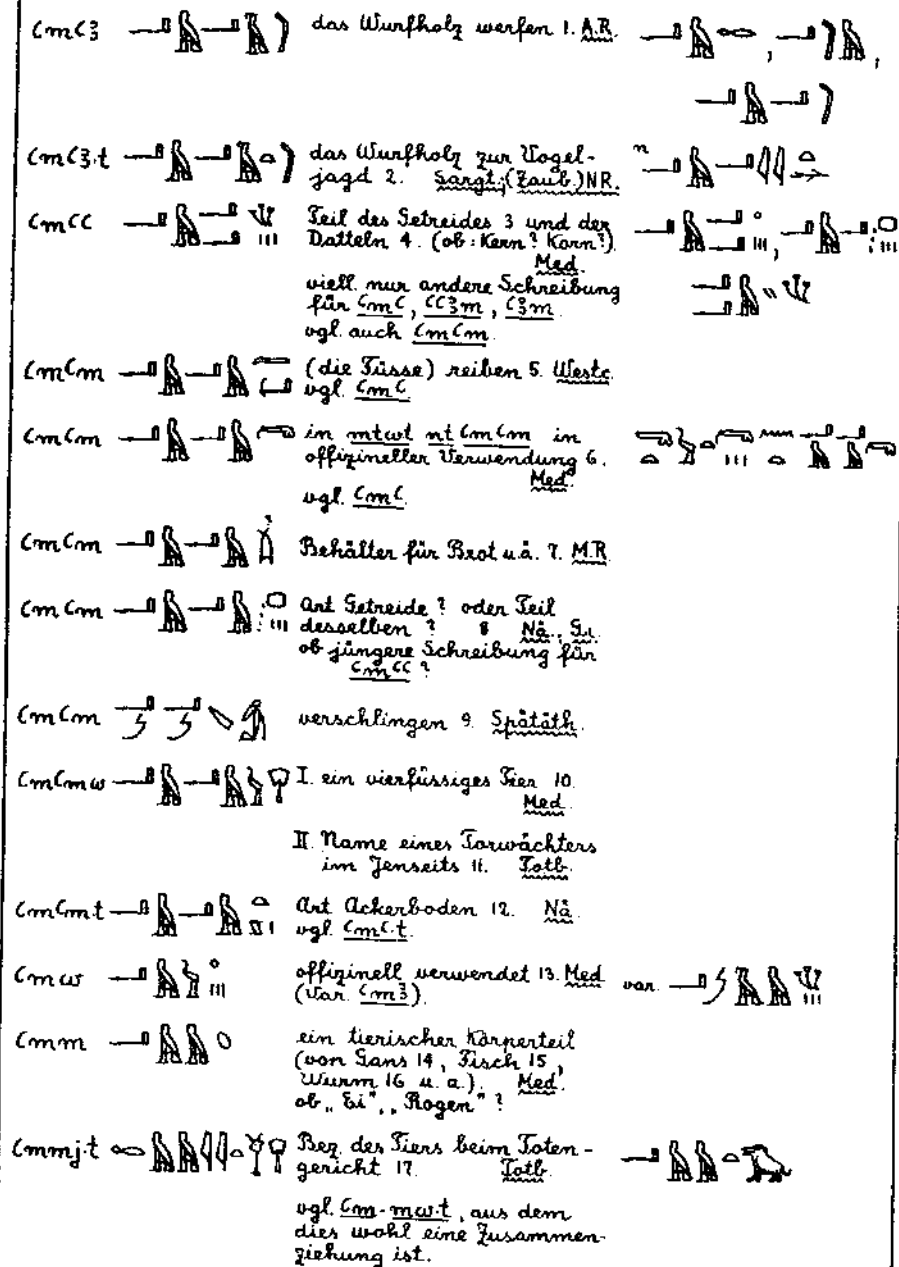 ꜥmꜥꜣ das Wurfholz werfen 1. A.R.
ꜥmꜥꜣ.t das Wurfholz zur Vogel-
jagd 2. Sargt; (Zaub.) NR.
ꜥmꜥꜥ Teil des Getreides 3 und der
Datteln 4. (ob: Kern? Korn?)
Med.
viell. nur andere Schreibung
für ꜥmꜥ, ꜥꜥꜣm, ꜥꜣm.
vgl. auch ꜥmꜥm.
ꜥmꜥm (die Füsse) reiben 5. Westc.
vgl. ꜥmꜥ
ꜥmꜥm in mtwt nt ꜥmꜥm in
offizineller Verwendung 6.
Med.
vgl. ꜥmꜥ.
ꜥmꜥm Behälter für Brot u.ä. 7. M.R.
ꜥmꜥm Art Getreide? oder Teil
desselben? 8 Nä., Gr.
ob jüngere Schreibung für
ꜥmꜥꜥ?
ꜥmꜥm verschlingen 9. Spätäth.
ꜥmꜥmw I. ein vierfüssiges Tier 10.
Med.
II. Name eines Torwächters
im Jenseits 11. Totb.
ꜥmꜥmt Art Ackerboden 12. Nä.
vgl. ꜥmꜥ.t.
ꜥmw offizinell verwendet 13. Med var.
(Var. ꜥmꜣ).
ꜥmm ein tierischer Körperteil
(von Gans 14, Fisch 15,
Wurm 16 u. a.). Med.
ob „Ei", „Rogen"?
ꜥmmj.t Bez. des Tiers beim Toten-
gericht 17. Totb.
vgl. ꜥm-mw.t, aus dem
dies wohl eine Zusammen-
ziehung ist.